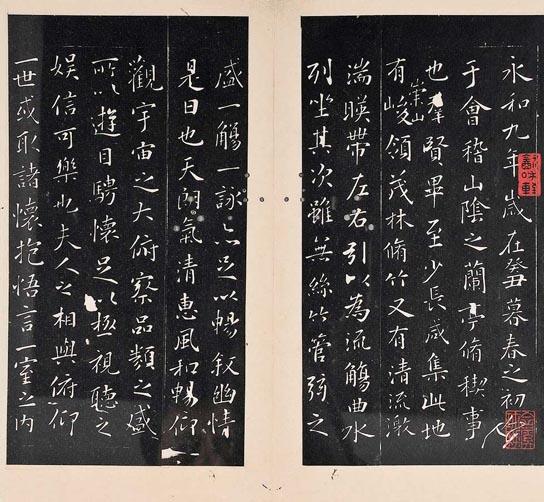 永和九年歲在癸丑暮春之初會
于會稽山陰之蘭亭脩稧事
也羣賢畢至少長咸集此地
有崇山峻領茂林脩竹又有清流激
湍暎帶左右引以為流觴曲水
列坐其次雖無絲竹管弦之
盛一觴一詠亦足以暢敘幽情
是日也天朗氣清惠風和暢仰
觀宇宙之大俯察品類之盛
所以遊目騁懷足以極視聽之
娛信可樂也夫人之相與俯仰
一世或取諸懷抱悟言一室之内